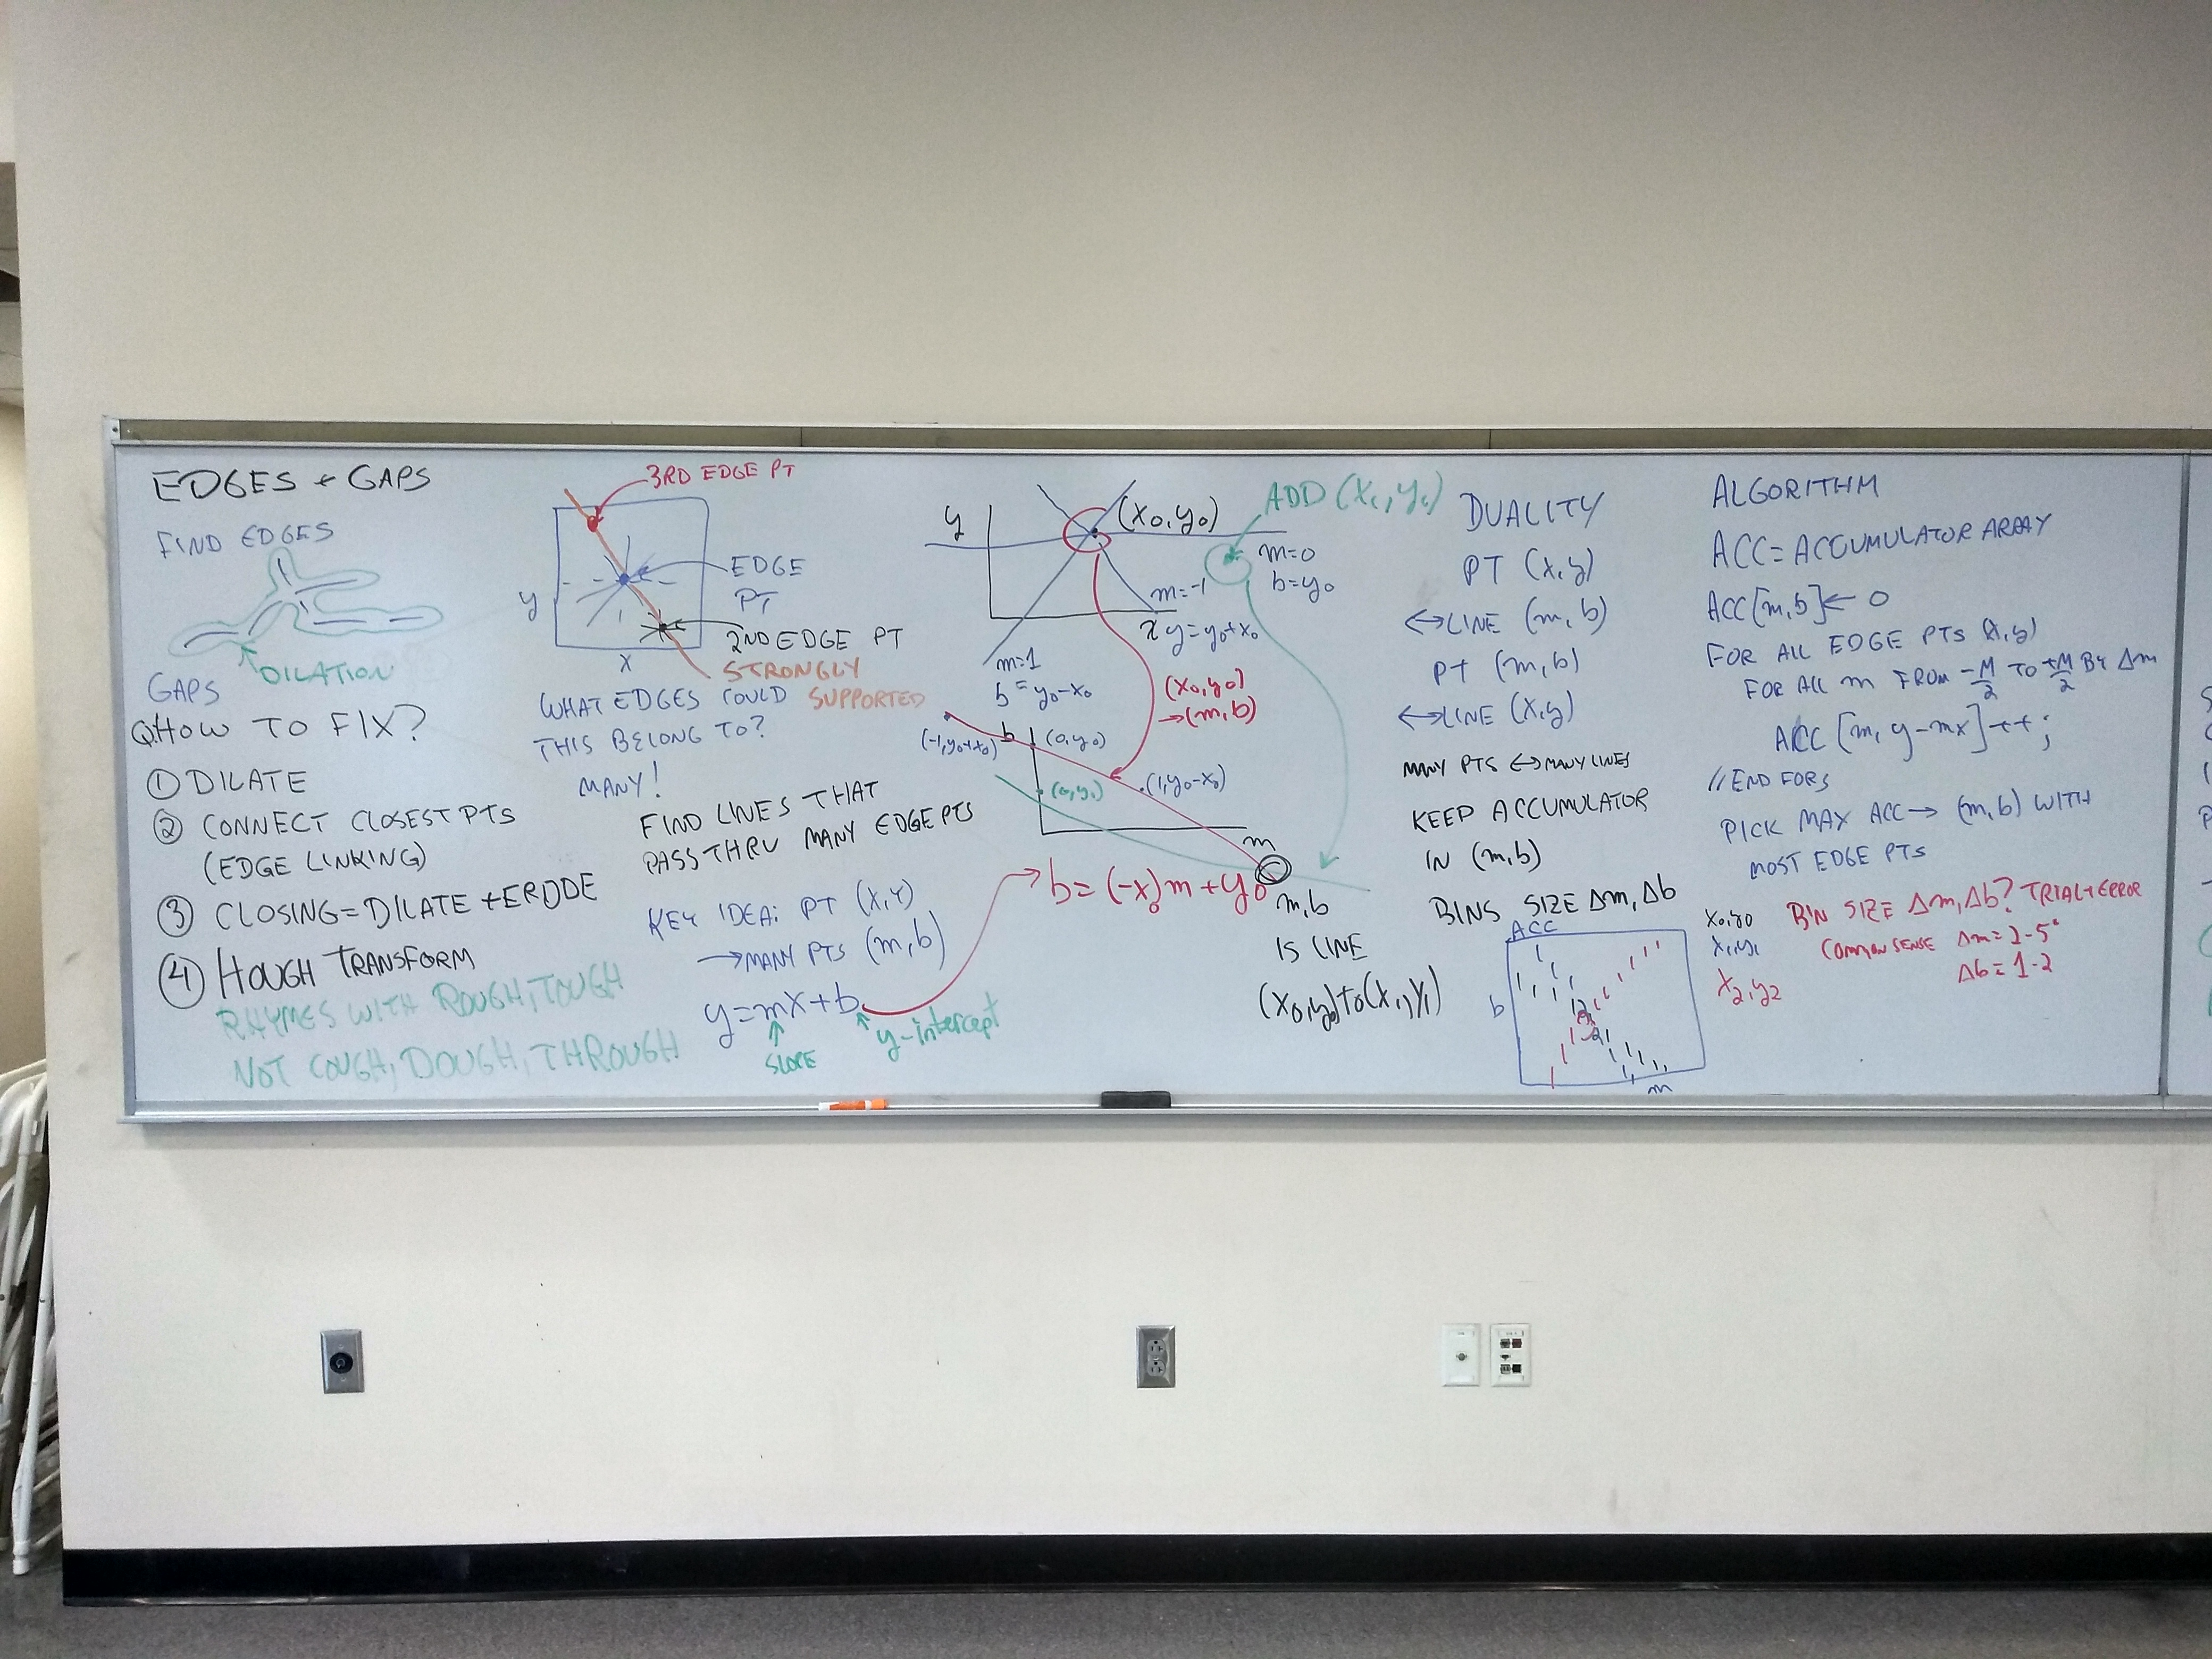 EDGES + GAPS
FIND EDGES
DILATION
GAPS
Q: HOW TO FIX?
① DILATE
② CONNECT CLOSEST PTS
(EDGE LINKING)
③ CLOSING = DILATE + ERODE
④ HOUGH TRANSFORM
RHYMES WITH ROUGH, TOUGH
NOT COUGH, DOUGH, THROUGH
3RD EDGE PT
EDGE
PT
2ND EDGE PT
y
x
STRONGLY
SUPPORTED
WHAT EDGES COULD
THIS BELONG TO?
MANY!
FIND LINES THAT
PASS THRU MANY EDGE PTS
KEY IDEA: PT (X,Y)
→ MANY PTS (m,b)
y=mx+b
SLOPE
y-intercept
y
(x₀,y₀)
ADD (x₁,y₁)
m=0
b=y₀
m=-1
x y=y₀+x₀
m=1
b=y₀-x₀
(x₀,y₀)
→(m,b)
(-1,y₀+x₀)
b
(0,y₀)
(0,y₁)
(1,y₀-x₀)
m
b=(-x₀)m+y₀
m,b
IS LINE
(x₀,y₀)to(x₁,y₁)
DUALITY
PT (x,y)
↔LINE (m,b)
PT (m,b)
↔LINE (x,y)
MANY PTS ↔ MANY LINES
KEEP ACCUMULATOR
IN (m,b)
BINS SIZE Δm,Δb
ACC
b
m
ALGORITHM
ACC = ACCUMULATOR ARRAY
ACC[m,b]← 0
FOR ALL EDGE PTS (x,y)
FOR ALL m FROM -M/2 TO +M/2 BY Δm
ACC[m, y-mx]++;
//END FORS
PICK MAX ACC → (m,b) WITH
MOST EDGE PTS
x₀,y₀
x₁,y₁
x₂,y₂
BIN SIZE Δm,Δb? TRIAL+ERROR
COMMON SENSE Δm=2-5°
Δb=1-2